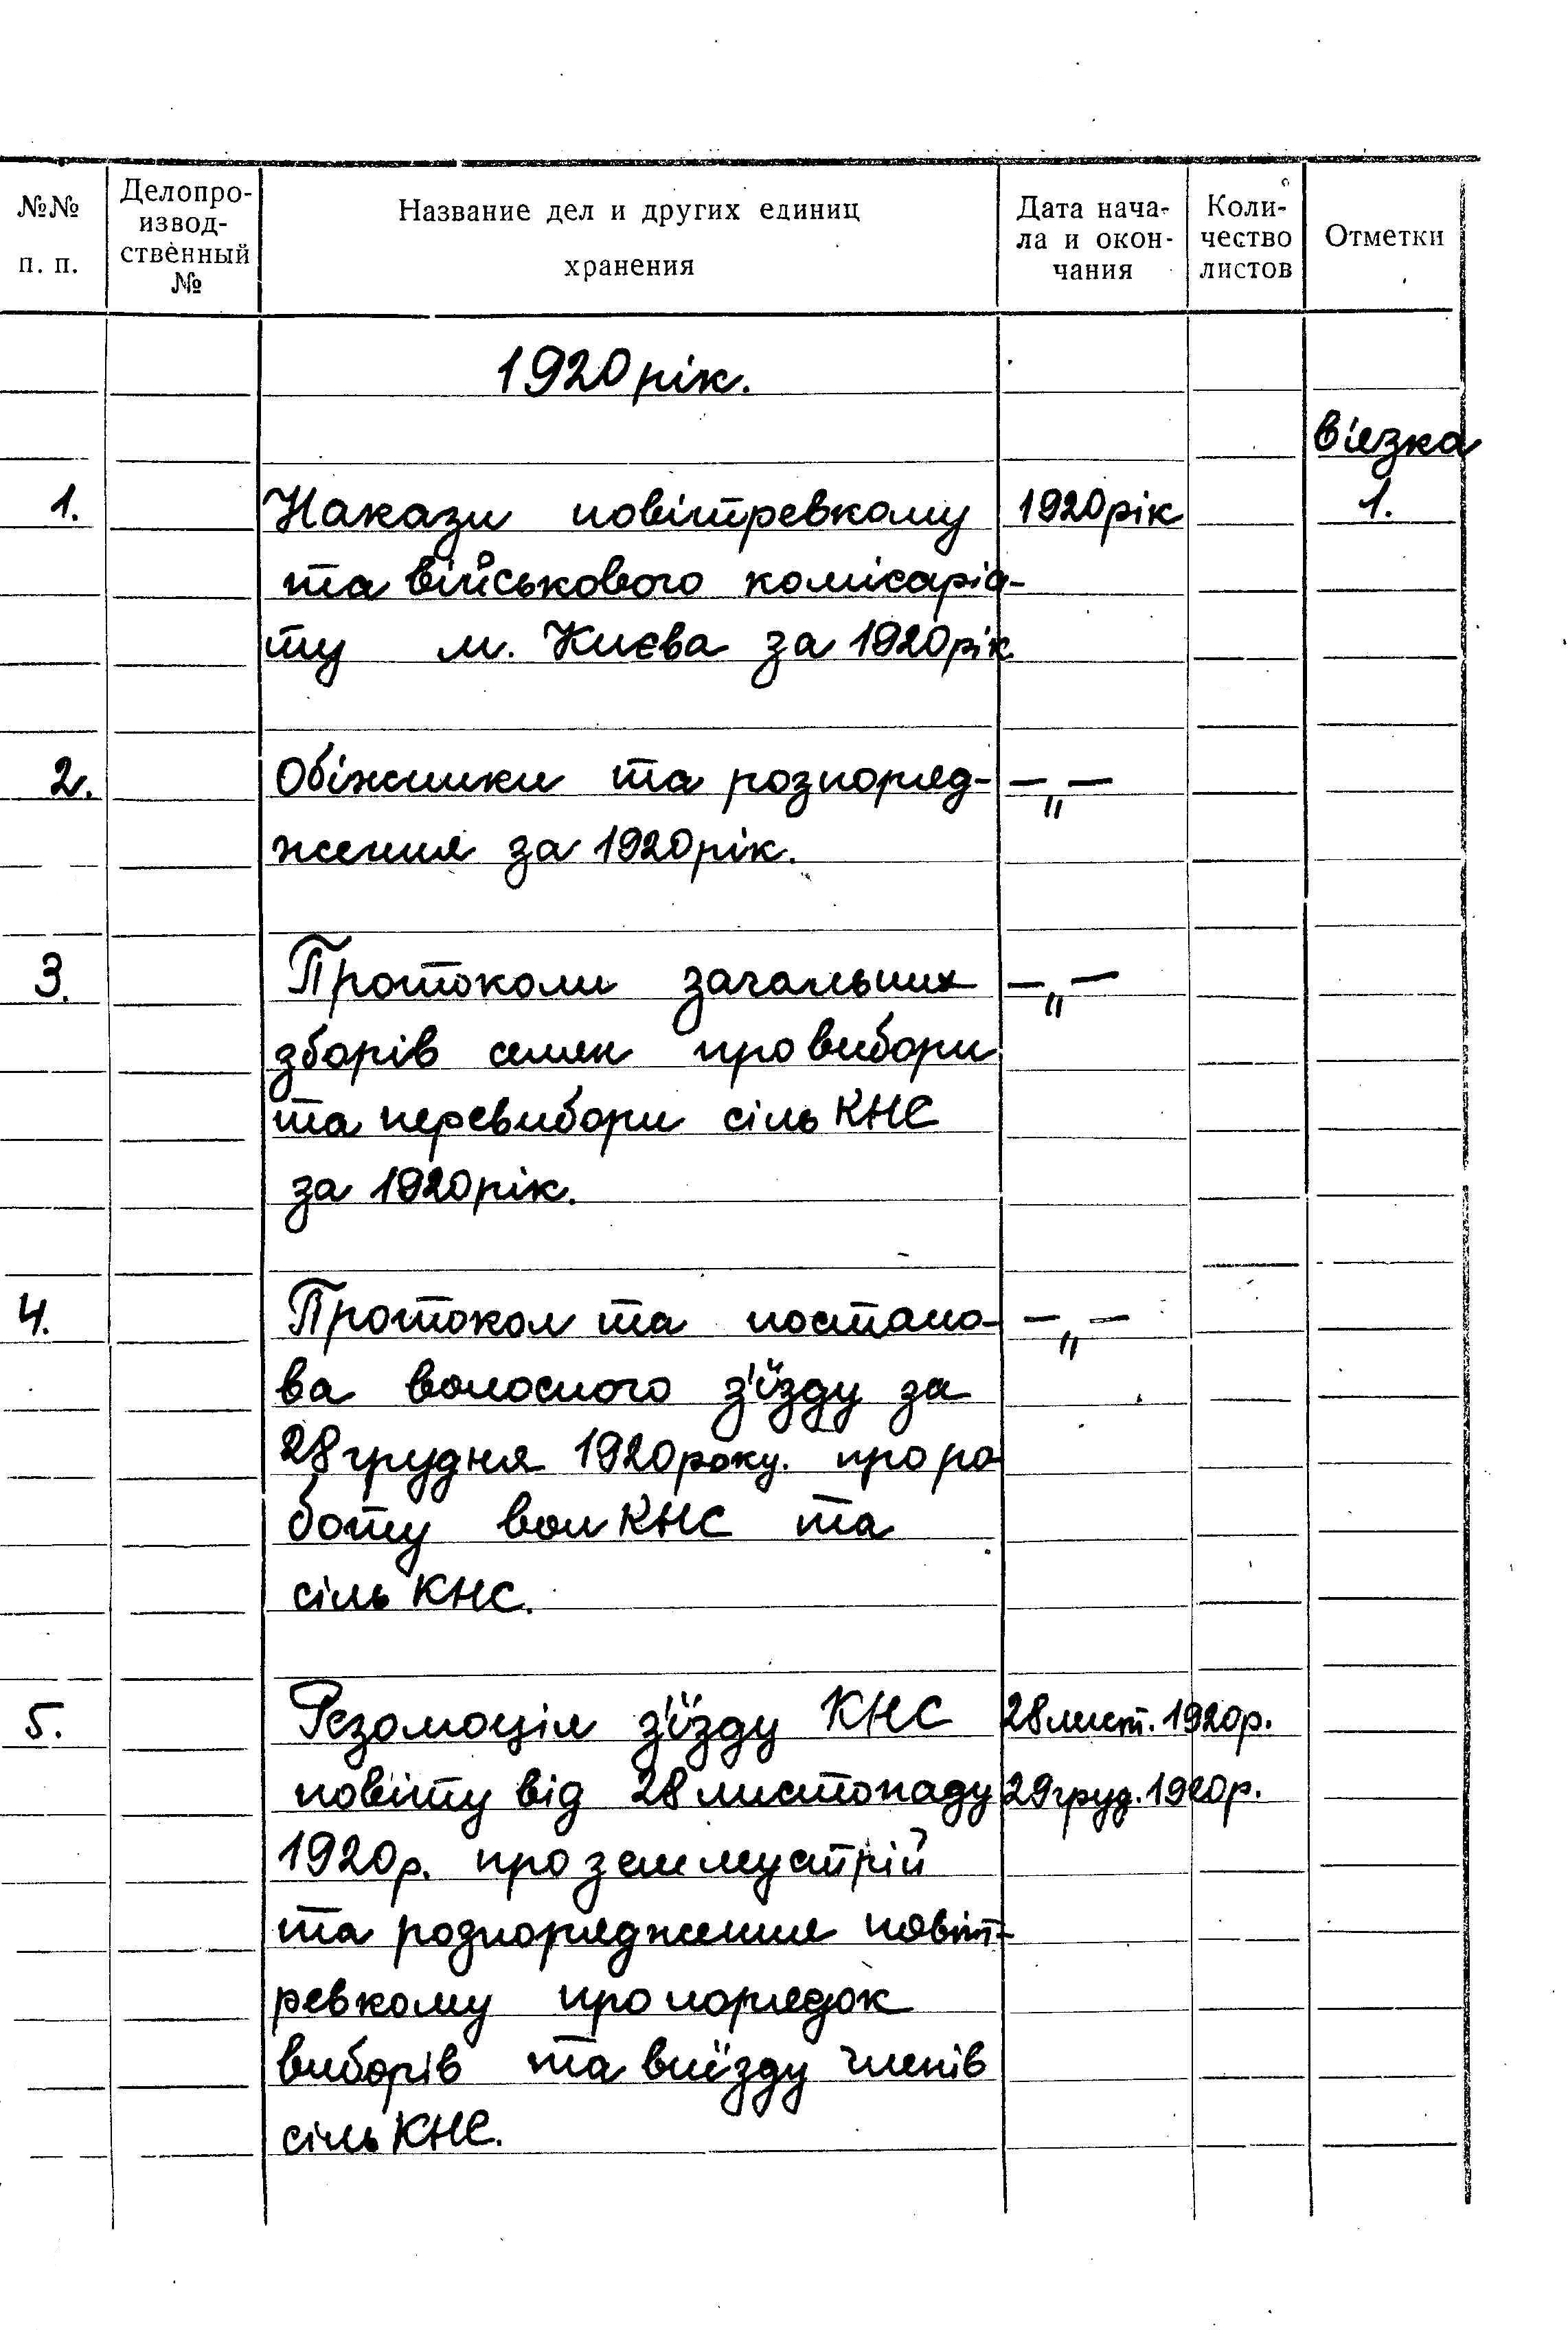 №№ п. п.
Делопро-
извод-
ственный
№
Название дел и других единиц
хранения
Дата нача-
ла и окон-
чания
Коли-
чество
листов
Отметки
1920 рік.
в'язка
1. Накази повітревкому 1920 рік 1.
та військового комісаріа-
ту м. Києва за 1920 рік
2. Обіжники та розпоряд- —„—
ження за 1920 рік.
3. Протоколи загальних —„—
зборів селян про вибори
та перевибори сіль КНС
за 1920 рік.
4. Протокол та постано- —„—
ва волосного з'їзду за
28 грудня 1920 року. про ро
боту вол КНС та
сіль КНС.
5. Резолюція з'їзду КНС 28 лист. 1920 р.
повіту від 28 листопаду 29 груд. 1920 р.
1920 р. про землеустрій
та розпорядження повіт-
ревкому про порядок
виборів та виїзду членів
сіль КНС.